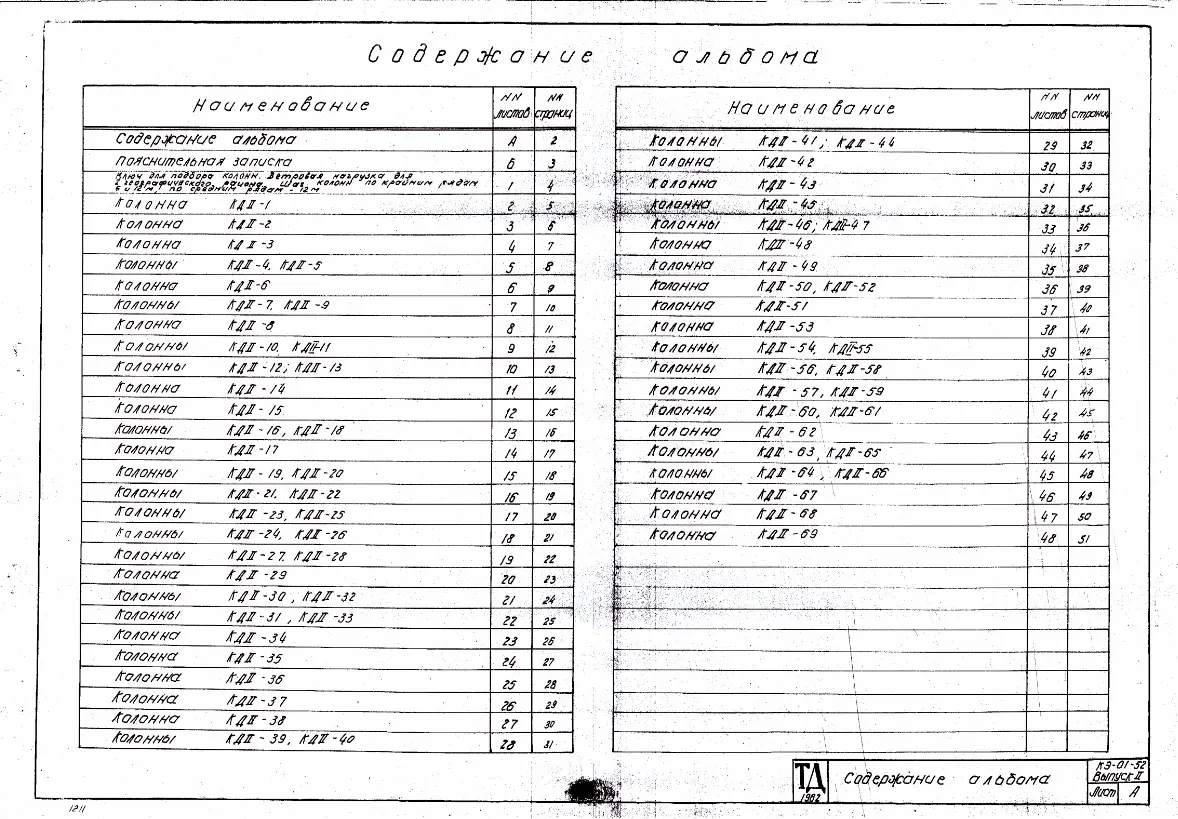 Содержание альбома
Наименование NN листов NN страниц
Содержание альбома А 2
Пояснительная записка Б 3
Ключ для подбора колонн. Ветровая нагрузка для
I географического района. Шаг колонн по крайним рядам
6 и 12 м, по средним рядам - 12 м 1 4
Колонна КДII-1 2 5
Колонна КДII-2 3 6
Колонна КДII-3 4 7
Колонны КДII-4, КДII-5 5 8
Колонна КДII-6 6 9
Колонны КДII-7, КДII-9 7 10
Колонна КДII-8 8 11
Колонны КДII-10, КДII-11 9 12
Колонны КДII-12; КДII-13 10 13
Колонна КДII-14 11 14
Колонна КДII-15 12 15
Колонны КДII-16, КДII-18 13 16
Колонна КДII-17 14 17
Колонны КДII-19, КДII-20 15 18
Колонны КДII-21, КДII-22 16 19
Колонны КДII-23, КДII-25 17 20
Колонны КДII-24, КДII-26 18 21
Колонны КДII-27, КДII-28 19 22
Колонна КДII-29 20 23
Колонны КДII-30, КДII-32 21 24
Колонны КДII-31, КДII-33 22 25
Колонна КДII-34 23 26
Колонна КДII-35 24 27
Колонна КДII-36 25 28
Колонна КДII-37 26 29
Колонна КДII-38 27 30
Колонны КДII-39, КДII-40 28 31
Наименование NN листов NN страниц
Колонны КДII-41; КДII-44 29 32
Колонна КДII-42 30 33
Колонна КДII-43 31 34
Колонна КДII-45 32 35
Колонны КДII-46; КДII-47 33 36
Колонна КДII-48 34 37
Колонна КДII-49 35 38
Колонна КДII-50, КДII-52 36 39
Колонна КДII-51 37 40
Колонна КДII-53 38 41
Колонны КДII-54, КДII-55 39 42
Колонны КДII-56, КДII-58 40 43
Колонны КДII-57, КДII-59 41 44
Колонны КДII-60, КДII-61 42 45
Колонна КДII-62 43 46
Колонны КДII-63, КДII-65 44 47
Колонны КДII-64, КДII-66 45 48
Колонна КДII-67 46 49
Колонна КДII-68 47 50
Колонна КДII-69 48 51
ТД
1962
Содержание альбома
КЭ-01-52
Выпуск II
Лист А
1211